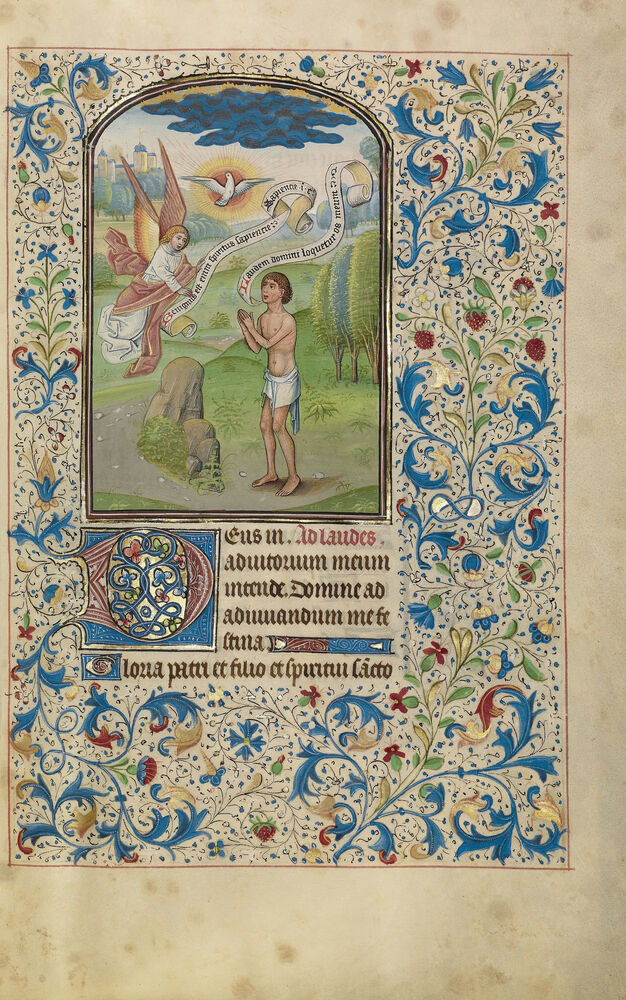 Benignus est enim spiritus sapiencie
Sapiencie i. c.
Laudem domini loquetur os meum &
Deus in. Ad laudes.
adiutorium meum
intende. Domine ad
adiuuandum me fe
stina
Gloria patri et filio et spiritui sancto